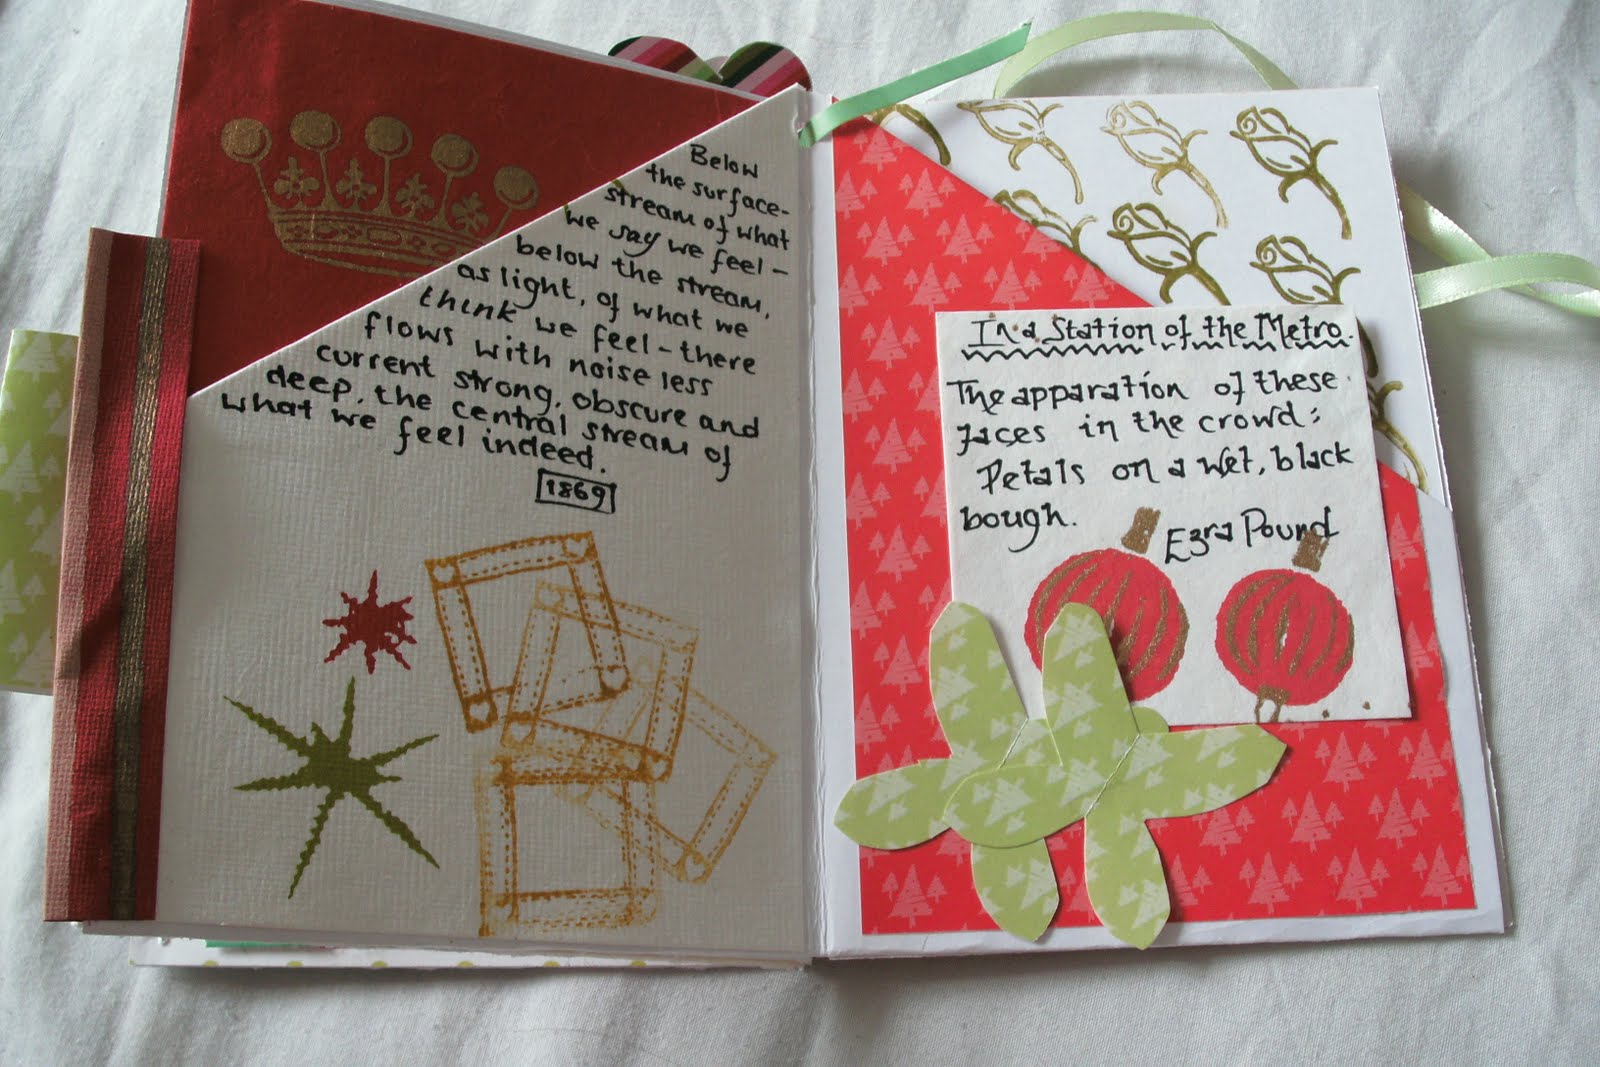 Below
the surface-
stream of what
we say we feel -
below the stream,
as light, of what we
think we feel - there
flows with noise less
current strong, obscure and
deep, the central stream of
what we feel indeed.
1869
In a Station of the Metro.
The apparation of these
faces in the crowd:
Petals on a wet, black
bough.
Ezra Pound